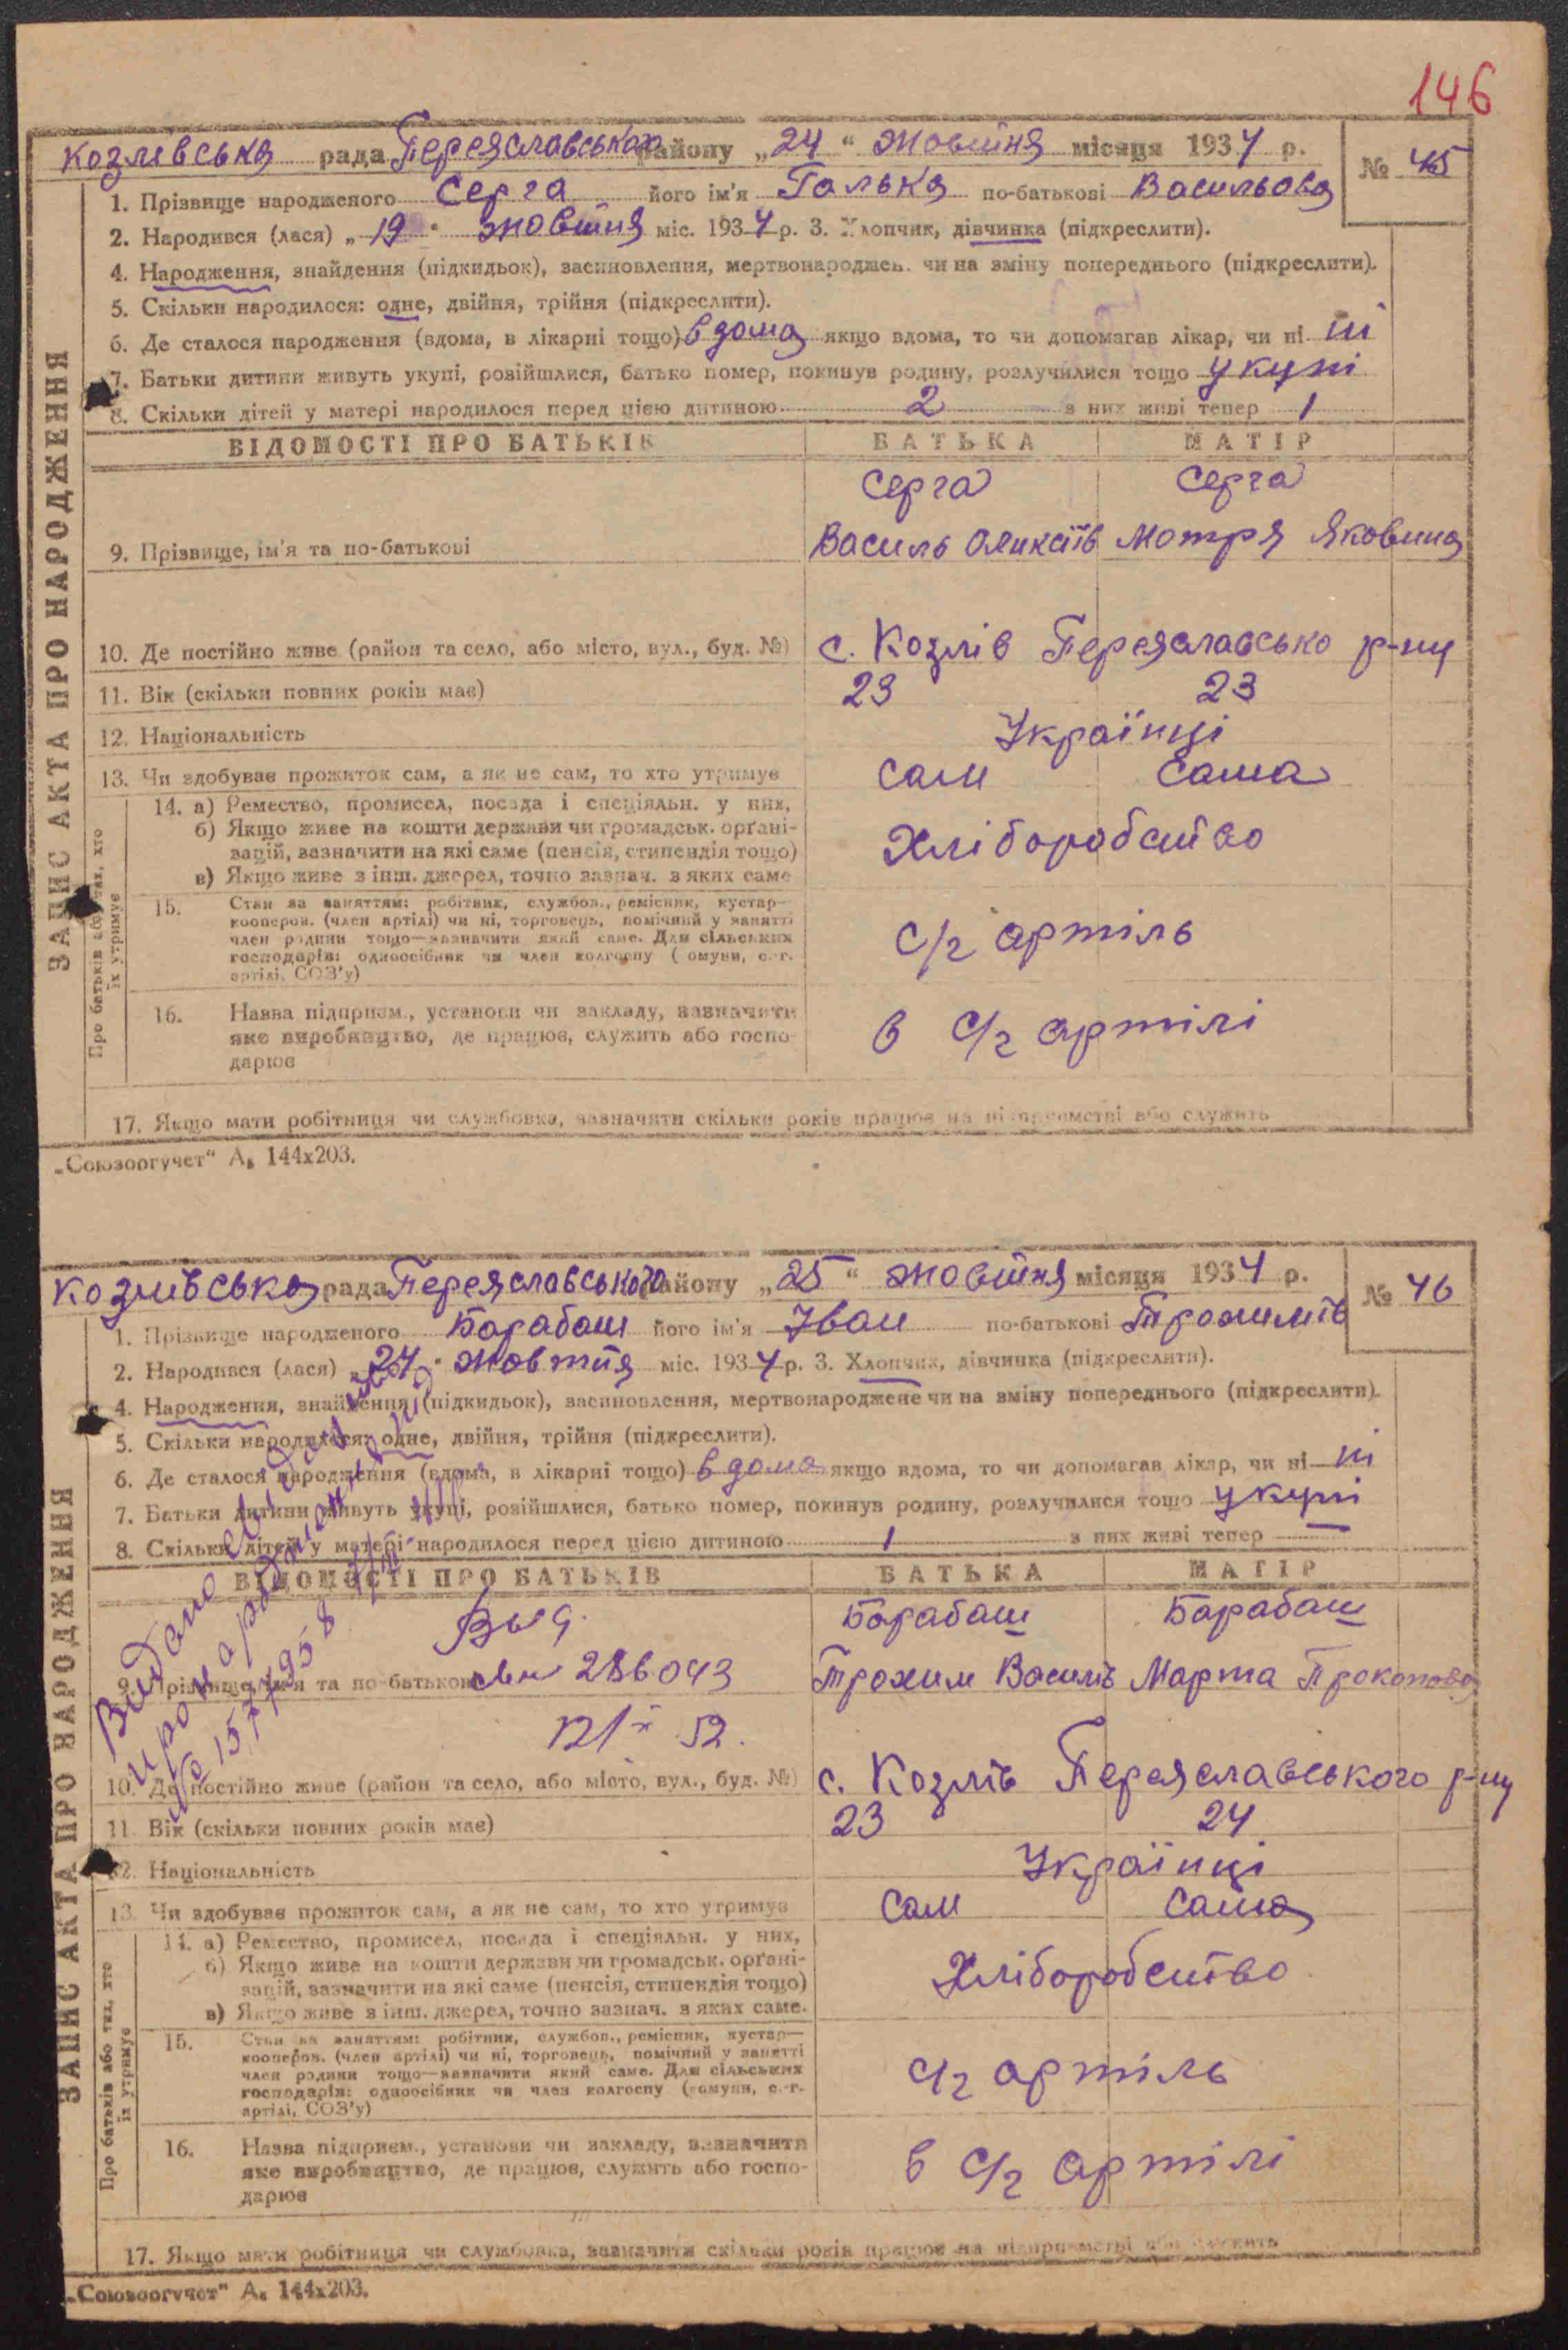 146
Козлівська рада Переяславського району „24“ Жовтня місяця 1934 р.
№ 45
1. Прізвище народженого Серга його ім'я Галька по-батькові Васильова
2. Народився (лася) „19" жовтня міс. 1934 р. 3. Хлопчик, дівчинка (підкреслити).
4. Народження, знайдення (підкидьок), засиновлення, мертвонароджен. чи на зміну попереднього (підкреслити).
5. Скільки народилося: одне, двійня, трійня (підкреслити).
6. Де сталося народження (вдома, в лікарні тощо) вдома якщо вдома, то чи допомагав лікар, чи ні ні
7. Батьки дитини живуть укупі, розійшлися, батько помер, покинув родину, розлучилися тощо укупі
8. Скільки дітей у матері народилося перед цією дитиною 2 з них живі тепер 1
ВІДОМОСТІ ПРО БАТЬКІВ БАТЬКА МАТІР
Серга Серга
9. Прізвище, ім'я та по-батькові Василь Оликсіїв Мотря Яковина
10. Де постійно живе (район та село, або місто, вул., буд. №) с. Козлів Переяславсько р-ну
11. Вік (скільки повних років має) 23 23
12. Національність Українці
13. Чи здобуває прожиток сам, а як не сам, то хто утримує сам сама
14. а) Ремество, промисел, посада і спеціяльн. у них,
б) Якщо живе на кошти держави чи громадськ. орґані-
зацій, зазначити на які саме (пенсія, стипендія тощо)
в) Якщо живе з інш. джерел, точно зазнач. з яких саме
Хліборобство
15. Стан за заняттям: робітник, службов., ремісник, кустар—
кооперов. (член артілі) чи ні, торговець, помічний у занятті
член родини тощо—зазначити який саме. Для сільських
господарів: одноосібник чи член колгоспу (комуни, с.-г.
артілі, СОЗ'у)
с/г артіль
16. Назва підприєм., установи чи закладу, зазначити
яке виробництво, де працює, служить або госпо-
дарює
в с/г артілі
17. Якщо мати робітниця чи службовка, зазначити скільки років працює на підприємстві або служить
ЗАПИС АКТА ПРО НАРОДЖЕННЯ
Про батьків або тих, хто
їх утримує
„Союзоргучет“ А₅ 144х203.
Козлівська рада Переяславського району „25“ Жовтня місяця 1934 р.
№ 46
1. Прізвище народженого Барабаш його ім'я Іван по-батькові Трохимів
2. Народився (лася) „24" жовтня міс. 1934 р. 3. Хлопчик, дівчинка (підкреслити).
4. Народження, знайдення (підкидьок), засиновлення, мертвонароджене чи на зміну попереднього (підкреслити).
5. Скільки народилося: одне, двійня, трійня (підкреслити).
6. Де сталося народження (вдома, в лікарні тощо) вдома якщо вдома, то чи допомагав лікар, чи ні ні
7. Батьки дитини живуть укупі, розійшлися, батько помер, покинув родину, розлучилися тощо укупі
8. Скільки дітей у матері народилося перед цією дитиною 1 з них живі тепер
ВІДОМОСТІ ПРО БАТЬКІВ БАТЬКА МАТІР
Барабаш Барабаш
9. Прізвище, ім'я та по-батькові Трохим Василів Марта Прокопова
286043
Видано
про народження
№ 1577958
10. Де постійно живе (район та село, або місто, вул., буд. №) с. Козлів Переяславського р-ну
11. Вік (скільки повних років має) 23 24
12. Національність Українці
13. Чи здобуває прожиток сам, а як не сам, то хто утримує сам сама
14. а) Ремество, промисел, посада і спеціяльн. у них,
б) Якщо живе на кошти держави чи громадськ. орґані-
зацій, зазначити на які саме (пенсія, стипендія тощо)
в) Якщо живе з інш. джерел, точно зазнач. з яких саме.
Хліборобство
15. Стан за заняттям: робітник, службов., ремісник, кустар—
кооперов. (член артілі) чи ні, торговець, помічний у занятті
член родини тощо—зазначити який саме. Для сільських
господарів: одноосібник чи член колгоспу (комуни, с.-г.
артілі, СОЗ'у)
с/г артіль
16. Назва підприєм., установи чи закладу, зазначити
яке виробництво, де працює, служить або госпо-
дарює
в с/г артілі
17. Якщо мати робітниця чи службовка, зазначити скільки років працює на підприємстві або служить
ЗАПИС АКТА ПРО НАРОДЖЕННЯ
Про батьків або тих, хто
їх утримує
„Союзоргучет“ А₅ 144х203.